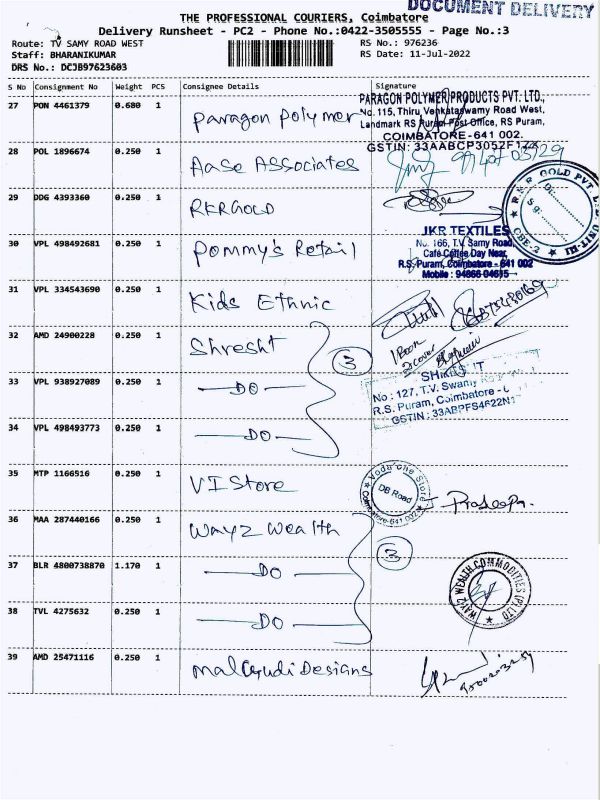 DOCUMENT DELIVERY
THE PROFESSIONAL COURIERS, Coimbatore
Delivery Runsheet - PC2 - Phone No.:0422-3505555 - Page No.:3
Route: TV SAMY ROAD WEST
RS No.: 976236
Staff: BHARANIKUMAR
RS Date: 11-Jul-2022
DRS No.: DCJB97623603
S No Consignment No Weight PCS Consignee Details Signature
27 PON 4461379 0.680 1 Paragon Polymer
PARAGON POLYMER PRODUCTS PVT. LTD.,
No. 115, Thiru. Venkataswamy Road West,
Landmark RS Puram Post Office, RS Puram,
COIMBATORE-641 002.
28 POL 1896674 0.250 1 Aase Associates
29 DDG 4393360 0.250 1 RKRGOLD
R.K.R GOLD PVT. LTD. UNIT-III
CBE-2
30 VPL 498492681 0.250 1 Pommy's Retail
JKR TEXTILES
No. 166, T.V. Samy Road,
Café Coffee Day Near,
R.S. Puram, Coimbatore - 641 002
Mobile : 94866 04615
31 VPL 334543690 0.250 1 Kids Ethnic
32 AMD 24900228 0.250 1 Shresht
3
1 Book
2 cover
33 VPL 938927089 0.250 1 DO
No : 127, T.V. Swamy
R.S. Puram, Coimbatore -
34 VPL 498493773 0.250 1 DO
35 MTP 1166516 0.250 1 VI Store
Vodafone Store
DB Road
Coimbatore-641 002
Pradeepa.
36 MAA 287440166 0.250 1 Way2 Wealth
3
37 BLR 4800738870 1.170 1 DO
WAY2 WEALTH COMMODITIES (P) LTD
38 TVL 4275632 0.250 1 DO
39 AMD 25471116 0.250 1 Malgudi Designs